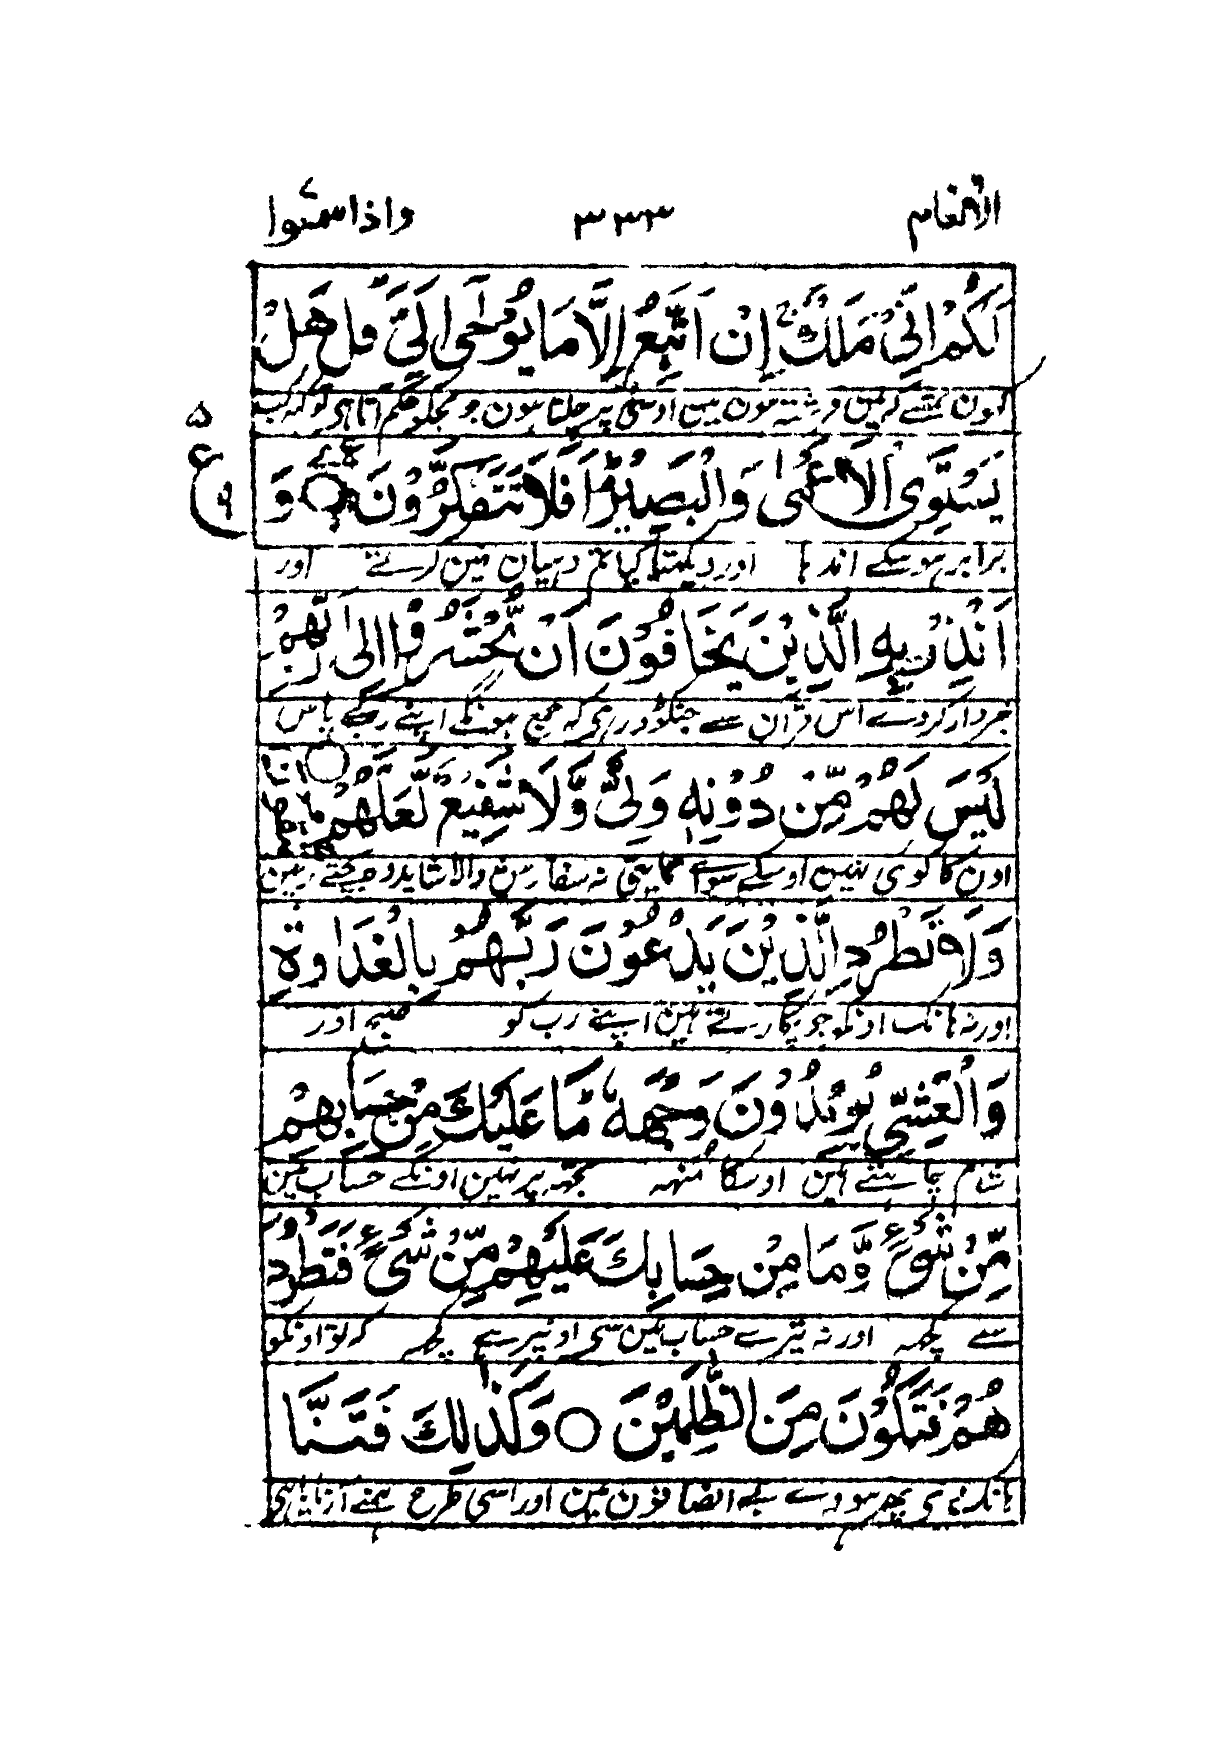 الانعام ٣٣٣ واذاسمعوا
لَكُمْ اِنِّیْ مَلَكٌ اِنْ اَتَّبِعُ اِلَّا مَا یُوْحٰۤی اِلَیَّ قُلْ هَلْ
کہون تمسے کہ مین فرشتہ ہون مین اوسی پر چلتا ہون جو مجکو حکم آتا ہی تو کہہ کب
یَسْتَوِی الْاَعْمٰی وَالْبَصِیْرُ اَفَلَا تَتَفَكَّرُوْنَ ○ وَ
۵
ع
برابر ہو سکے اندہا اور دیکہتا کیا تم دہیان نہین کرتے اور
اَنْذِرْ بِهِ الَّذِیْنَ یَخَافُوْنَ اَنْ یُّحْشَرُوْۤا اِلٰی رَبِّهِمْ
خبردار کردے اس قرآن سے جنکو ڈر ہی کہ جمع ہونگے اپنے رب کے پاس
لَیْسَ لَهُمْ مِّنْ دُوْنِهٖ وَلِیٌّ وَّلَا شَفِیْعٌ لَّعَلَّهُمْ
اون کا کوئی نہین اوسکے سوائے حمایتی نہ سفارش والا شاید وہ بچتے رہین
وَلَا تَطْرُدِ الَّذِیْنَ یَدْعُوْنَ رَبَّهُمْ بِالْغَدٰوةِ
اور نہ ہانک اونکو جو پکارتے ہین اپنے رب کو صبح اور
وَالْعَشِیِّ یُرِیْدُوْنَ وَجْهَهٗ مَا عَلَیْكَ مِنْ حِسَابِهِمْ
شام چاہتے ہین اوسکا منہہ تجہہ پر نہین اونکے حساب مین
مِّنْ شَیْءٍ وَّمَا مِنْ حِسَابِكَ عَلَیْهِمْ مِّنْ شَیْءٍ فَتَطْرُدَ
سے کچہہ اور نہ تیرے حساب مین سے اونپر ہے کچہہ کہ تو اونکو
هُمْ فَتَكُوْنَ مِنَ الظّٰلِمِیْنَ ○ وَكَذٰلِكَ فَتَنَّا
ہانک دے پہر ہووے بے انصافون مین اور اسی طرح ہمنے آزمایا ہی